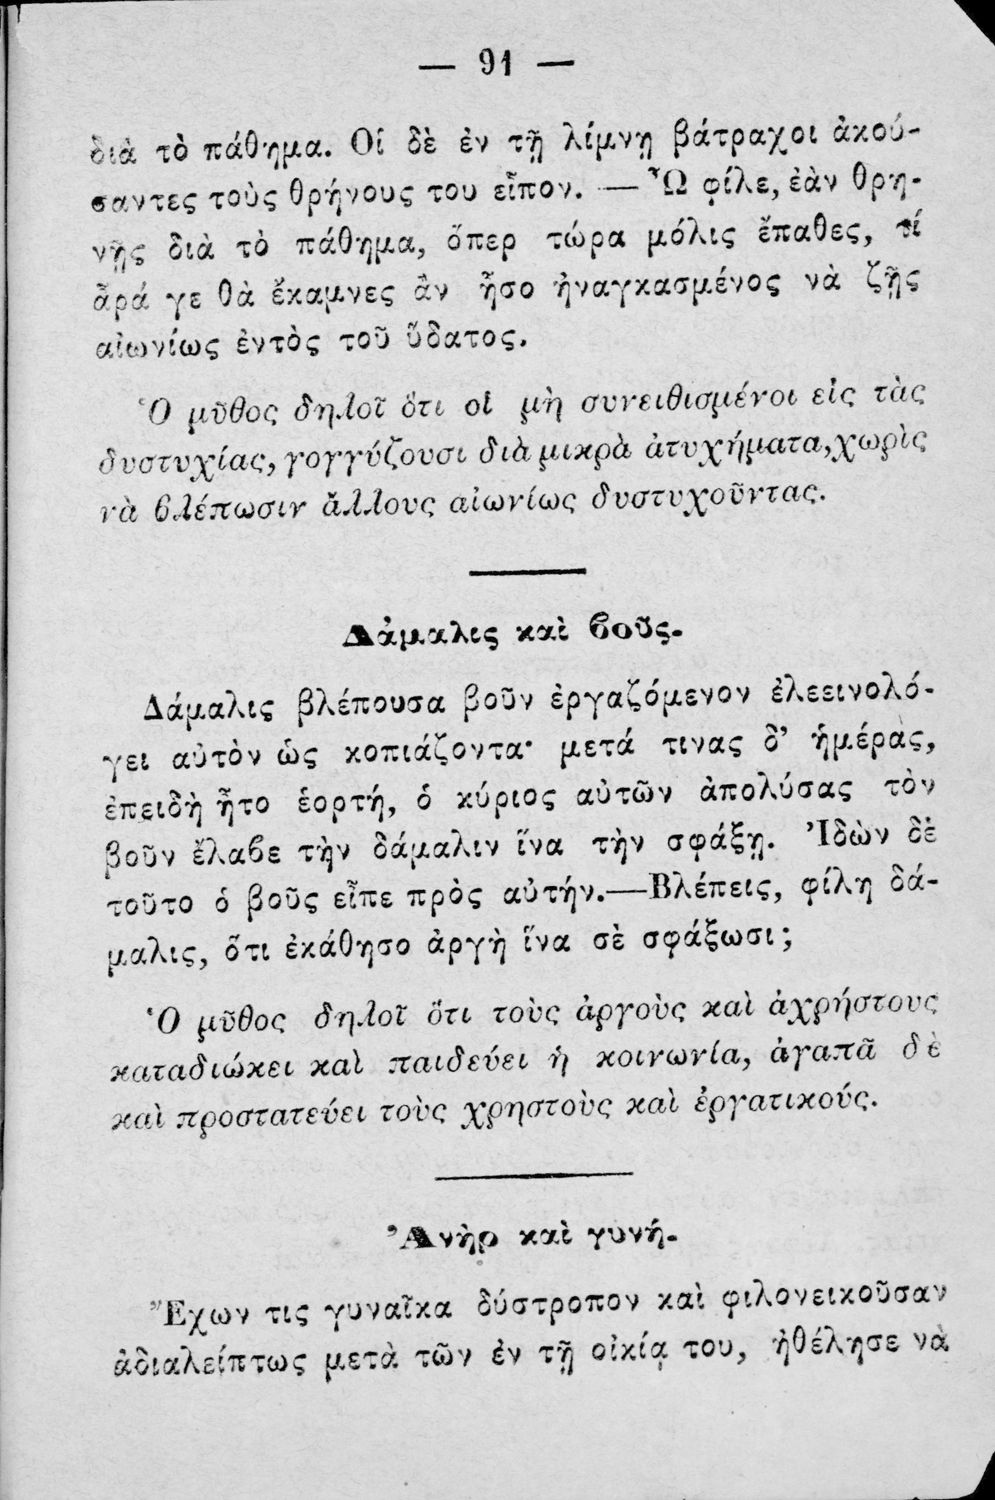 — 91 —
διὰ τὸ πάθημα. Οἱ δὲ ἐν τῇ λίμνῃ βάτραχοι ἀκού-
σαντες τοὺς θρήνους του εἶπον. — Ὦ φίλε, ἐὰν θρη-
νῇς διὰ τὸ πάθημα, ὅπερ τώρα μόλις ἔπαθες, τί
ἆρά γε θὰ ἔκαμνες ἂν ἦσο ἠναγκασμένος νὰ ζῇς
αἰωνίως ἐντὸς τοῦ ὕδατος.
Ὁ μῦθος δηλοῖ ὅτι οἱ μὴ συνειθισμένοι εἰς τὰς
δυστυχίας, γογγύζουσι διὰ μικρὰ ἀτυχήματα, χωρὶς
νὰ βλέπωσιν ἄλλους αἰωνίως δυστυχοῦντας.
Δάμαλις καὶ βοῦς.
Δάμαλις βλέπουσα βοῦν ἐργαζόμενον ἐλεεινολό-
γει αὐτὸν ὡς κοπιάζοντα· μετά τινας δ’ ἡμέρας,
ἐπειδὴ ἦτο ἑορτή, ὁ κύριος αὐτῶν ἀπολύσας τὸν
βοῦν ἔλαβε τὴν δάμαλιν ἵνα τὴν σφάξῃ. Ἰδὼν δὲ
τοῦτο ὁ βοῦς εἶπε πρὸς αὐτήν.—Βλέπεις, φίλη δά-
μαλις, ὅτι ἐκάθησο ἀργὴ ἵνα σὲ σφάξωσι;
Ὁ μῦθος δηλοῖ ὅτι τοὺς ἀργοὺς καὶ ἀχρήστους
καταδιώκει καὶ παιδεύει ἡ κοινωνία, ἀγαπᾶ δὲ
καὶ προστατεύει τοὺς χρηστοὺς καὶ ἐργατικούς.
Ἀνὴρ καὶ γυνή.
Ἔχων τις γυναῖκα δύστροπον καὶ φιλονεικοῦσαν
ἀδιαλείπτως μετὰ τῶν ἐν τῇ οἰκίᾳ του, ἠθέλησε νὰ